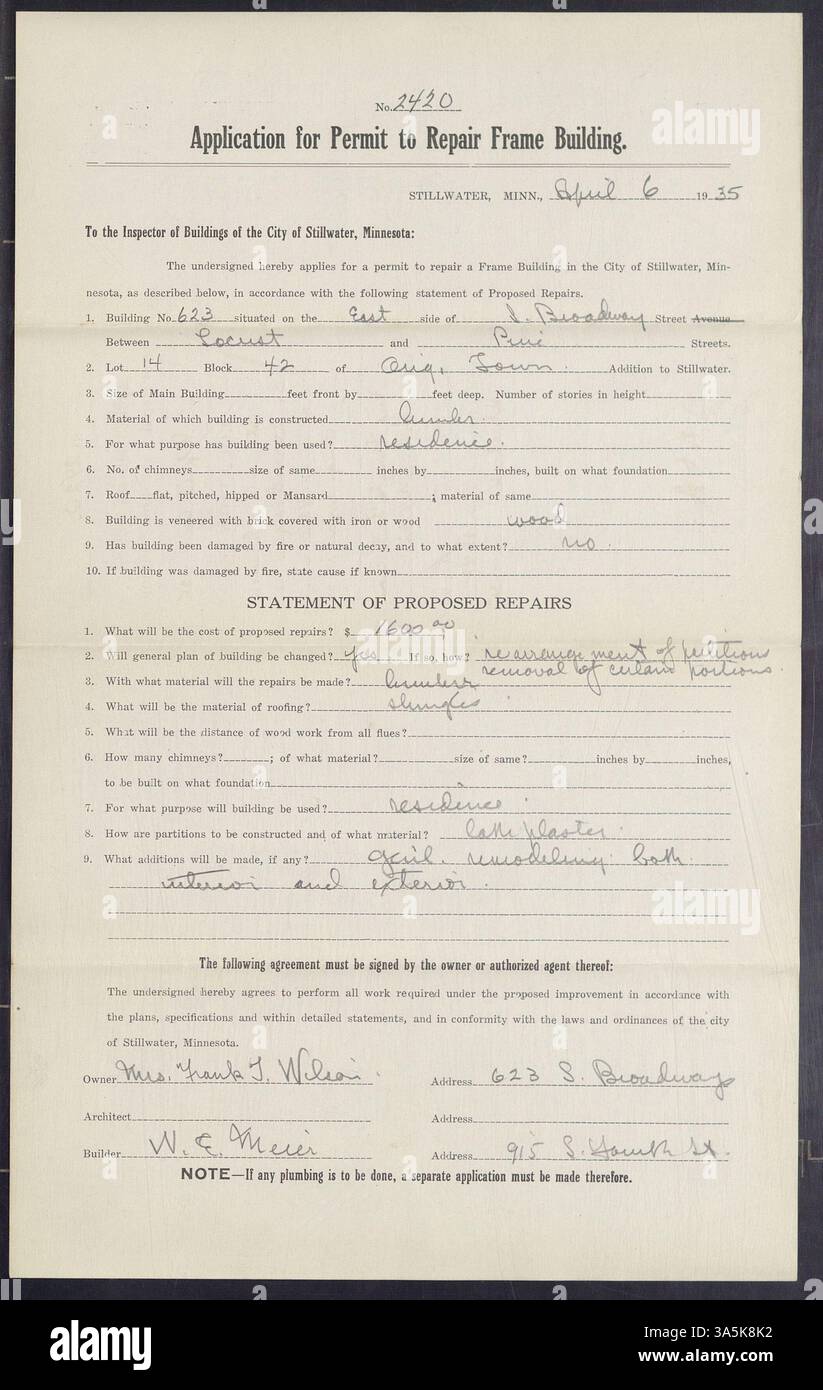 No. 2420
Application for Permit to Repair Frame Building.
STILLWATER, MINN., April 6 1935
To the Inspector of Buildings of the City of Stillwater, Minnesota:
The undersigned hereby applies for a permit to repair a Frame Building in the City of Stillwater, Min-
nesota, as described below, in accordance with the following statement of Proposed Repairs.
1. Building No. 623 situated on the East side of S. Broadway Street Avenue
Between Locust and Pine Streets.
2. Lot 14 Block 42 of Orig. Town Addition to Stillwater.
3. Size of Main Building feet front by feet deep. Number of stories in height
4. Material of which building is constructed lumber.
5. For what purpose has building been used? residence.
6. No. of chimneys size of same inches by inches, built on what foundation
7. Roof flat, pitched, hipped or Mansard ; material of same
8. Building is veneered with brick covered with iron or wood wood
9. Has building been damaged by fire or natural decay, and to what extent? no.
10. If building was damaged by fire, state cause if known
STATEMENT OF PROPOSED REPAIRS
1. What will be the cost of proposed repairs? $ 1600 00
2. Will general plan of building be changed? yes If so, how? rearrangement of petitions
removal of certain portions.
3. With what material will the repairs be made? lumber
4. What will be the material of roofing? shingles
5. What will be the distance of wood work from all flues?
6. How many chimneys? ; of what material? size of same? inches by inches,
to be built on what foundation
7. For what purpose will building be used? residence.
8. How are partitions to be constructed and of what material? lath plaster.
9. What additions will be made, if any? genl. remodeling both
interior and exterior.
The following agreement must be signed by the owner or authorized agent thereof:
The undersigned hereby agrees to perform all work required under the proposed improvement in accordance with
the plans, specifications and within detailed statements, and in conformity with the laws and ordinances of the city
of Stillwater, Minnesota.
Owner Mrs. Frank T. Wilson. Address 623 S. Broadway
Architect Address
Builder W. E. Meier Address 915 S. Fourth St.
NOTE—If any plumbing is to be done, a separate application must be made therefore.
alamy
Image ID: 3A5K8K2
www.alamy.com